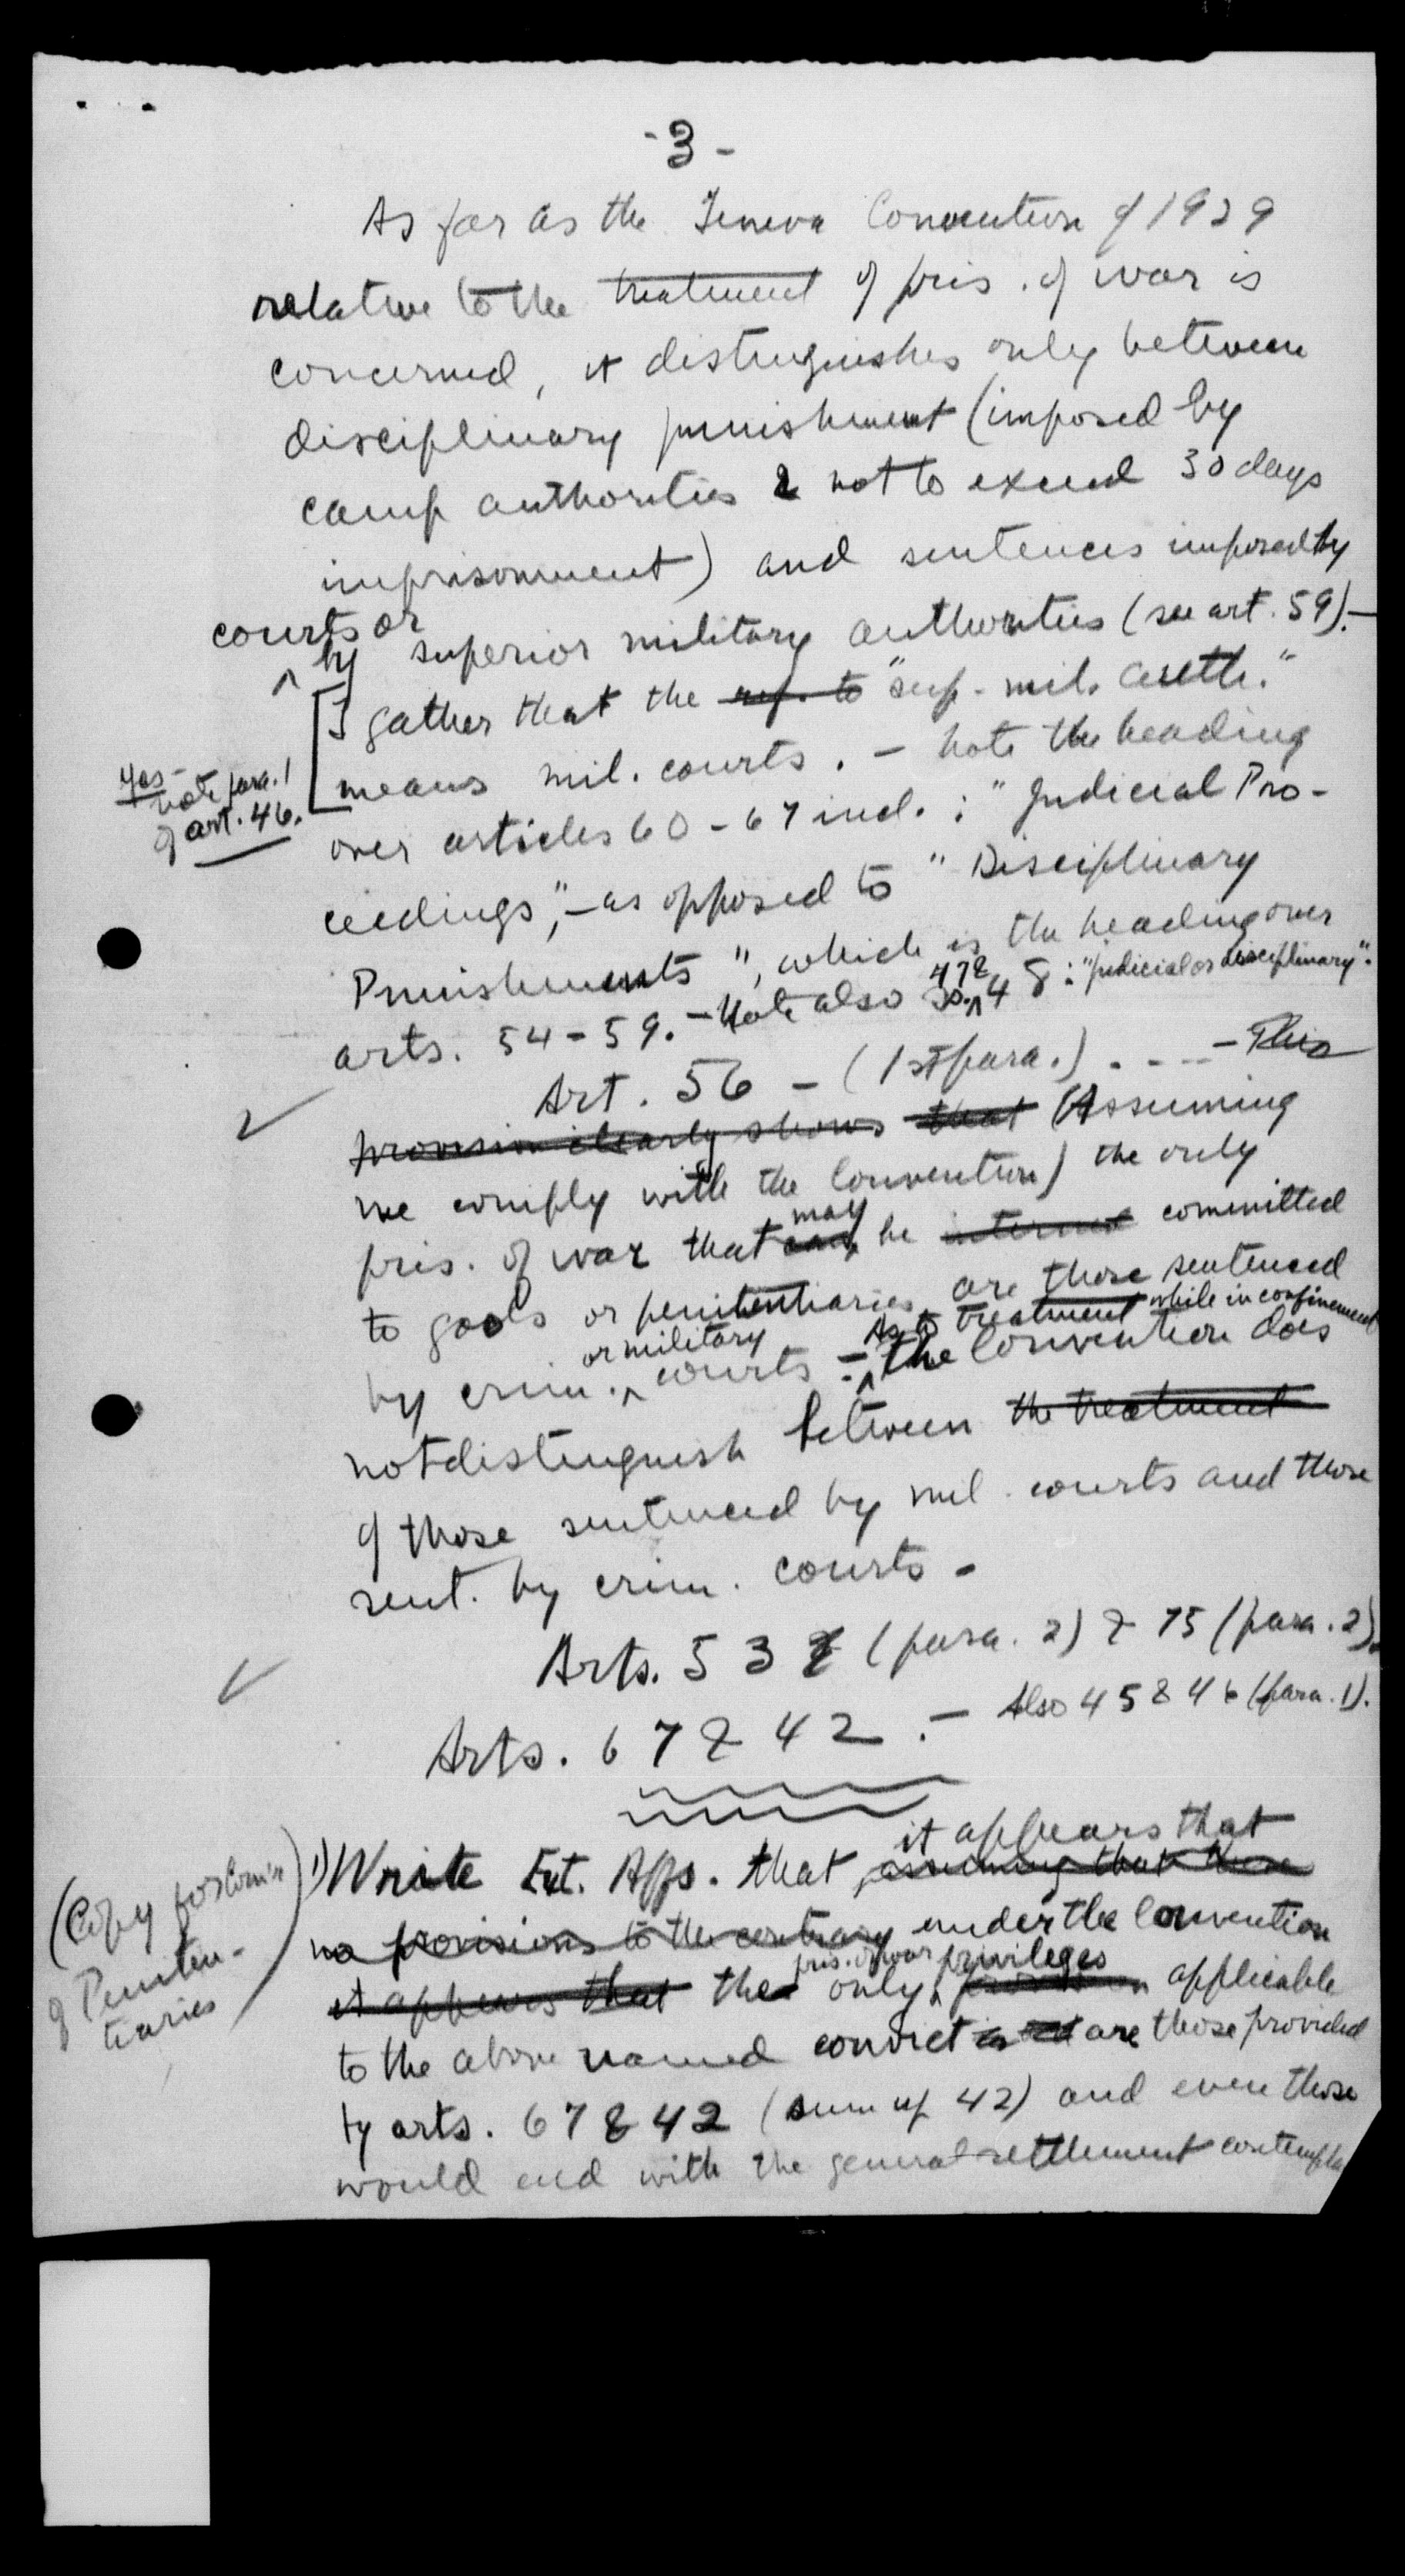 -3-
As far as the Geneva Convention of 1929
relative to the treatment of pris. of war is
concerned, it distinguishes only between
disciplinary punishment (imposed by
camp authorities & not to exceed 30 days
imprisonment) and sentences imposed by
courts or
by superior military authorities (see art. 59).—
I gather that the ref. to "sup. mil. auth."
means mil. courts. — Note the heading
Yes —
note para. 1
of art. 46.
over articles 60 - 67 incl. : "Judicial Pro-
ceedings", — as opposed to "Disciplinary
Punishments", which is the heading over
arts. 54 - 59. — Note also 47 & 48: "judicial or disciplinary".
Art. 56 — (1st para.) . - - - This
provision clearly shows that (Assuming
we comply with the Convention) the only
pris. of war that may be interned committed
to gaols or penitentiaries are those sentenced
by crim. or military courts. — As to treatment while in confinement the Convention does
not distinguish between the treatment
of those sentenced by mil. courts and those
sent. by crim. courts -
Arts. 53 (para. 2) & 75 (para. 2).
Arts. 67 & 42. — Also 45 & 46 (para. 1).
(Copy for Com'r
of Peniten-
tiaries
1) Write Ext. Affs. that it appears that assuming that there
no provisions to the contrary under the Convention
it appears that the only pris. of war privileges applicable
to the above named convict are those provided
by arts. 67 & 42 (sum up 42) and even those
would end with the general settlement contempla